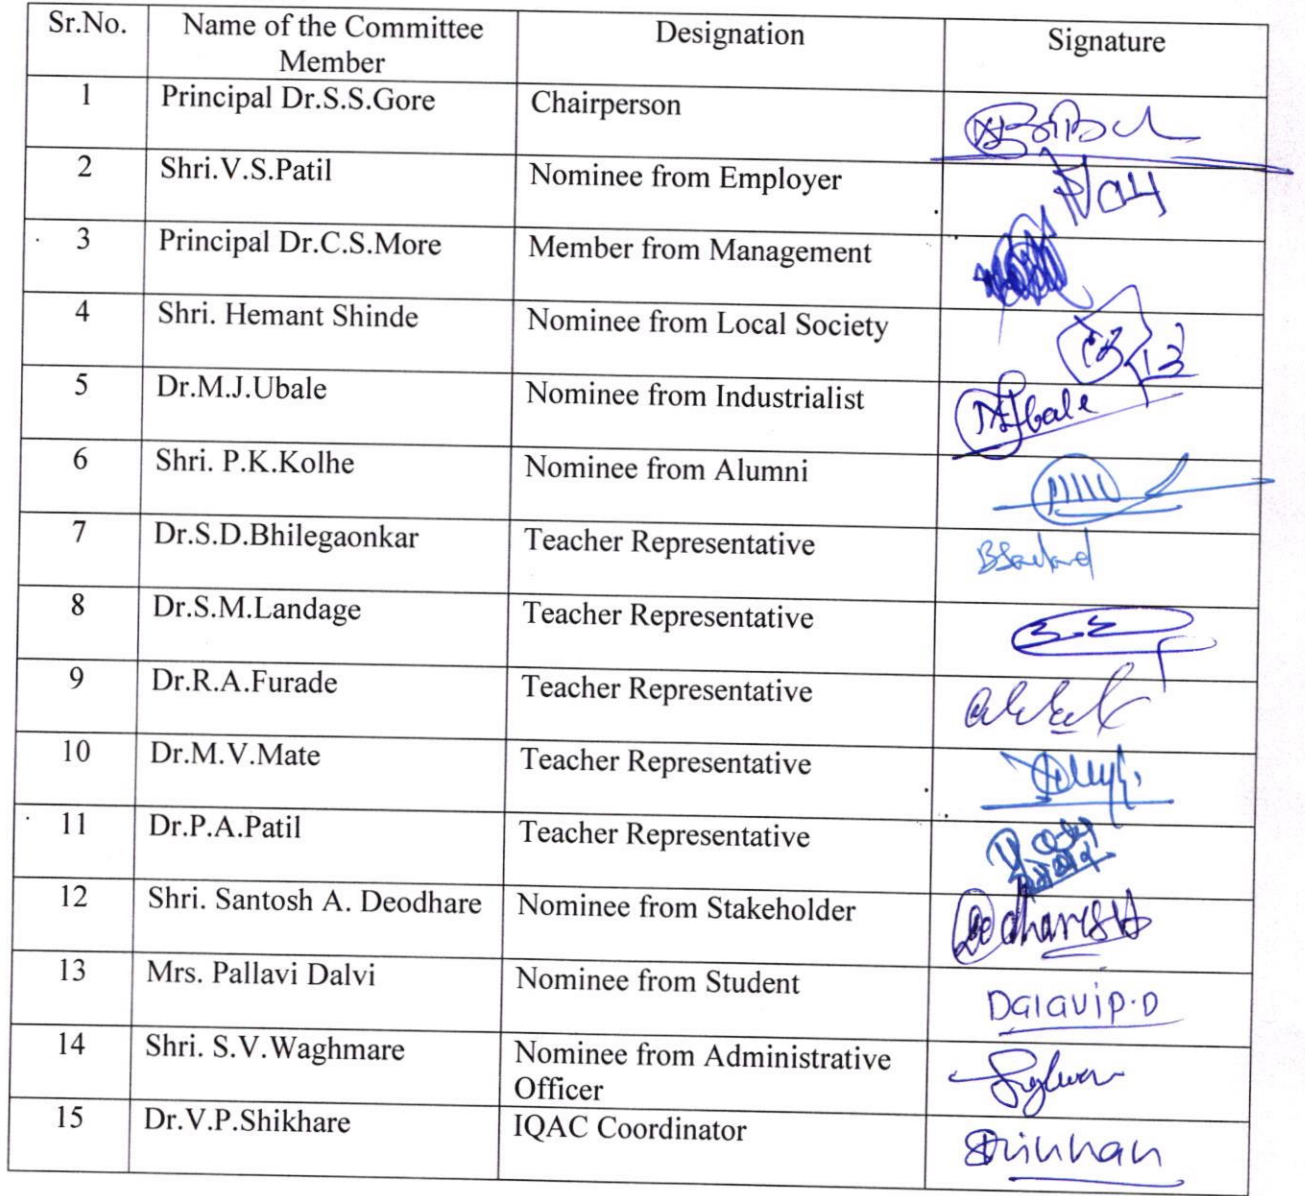 Sr.No. Name of the Committee Member Designation Signature
1 Principal Dr.S.S.Gore Chairperson
2 Shri.V.S.Patil Nominee from Employer
3 Principal Dr.C.S.More Member from Management
4 Shri. Hemant Shinde Nominee from Local Society
5 Dr.M.J.Ubale Nominee from Industrialist
6 Shri. P.K.Kolhe Nominee from Alumni
7 Dr.S.D.Bhilegaonkar Teacher Representative
8 Dr.S.M.Landage Teacher Representative
9 Dr.R.A.Furade Teacher Representative
10 Dr.M.V.Mate Teacher Representative
11 Dr.P.A.Patil Teacher Representative
12 Shri. Santosh A. Deodhare Nominee from Stakeholder
13 Mrs. Pallavi Dalvi Nominee from Student Dalavi P.D
14 Shri. S.V.Waghmare Nominee from Administrative Officer
15 Dr.V.P.Shikhare IQAC Coordinator